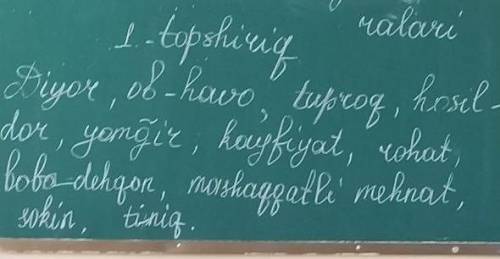 ralari
1.-topshiriq
Diyor, ob-havo, tuproq, hosil-
dor, yomg'ir, kayfiyat, rohat,
bobo-dehqon, mashaqqatli mehnat,
sokin, tiniq.